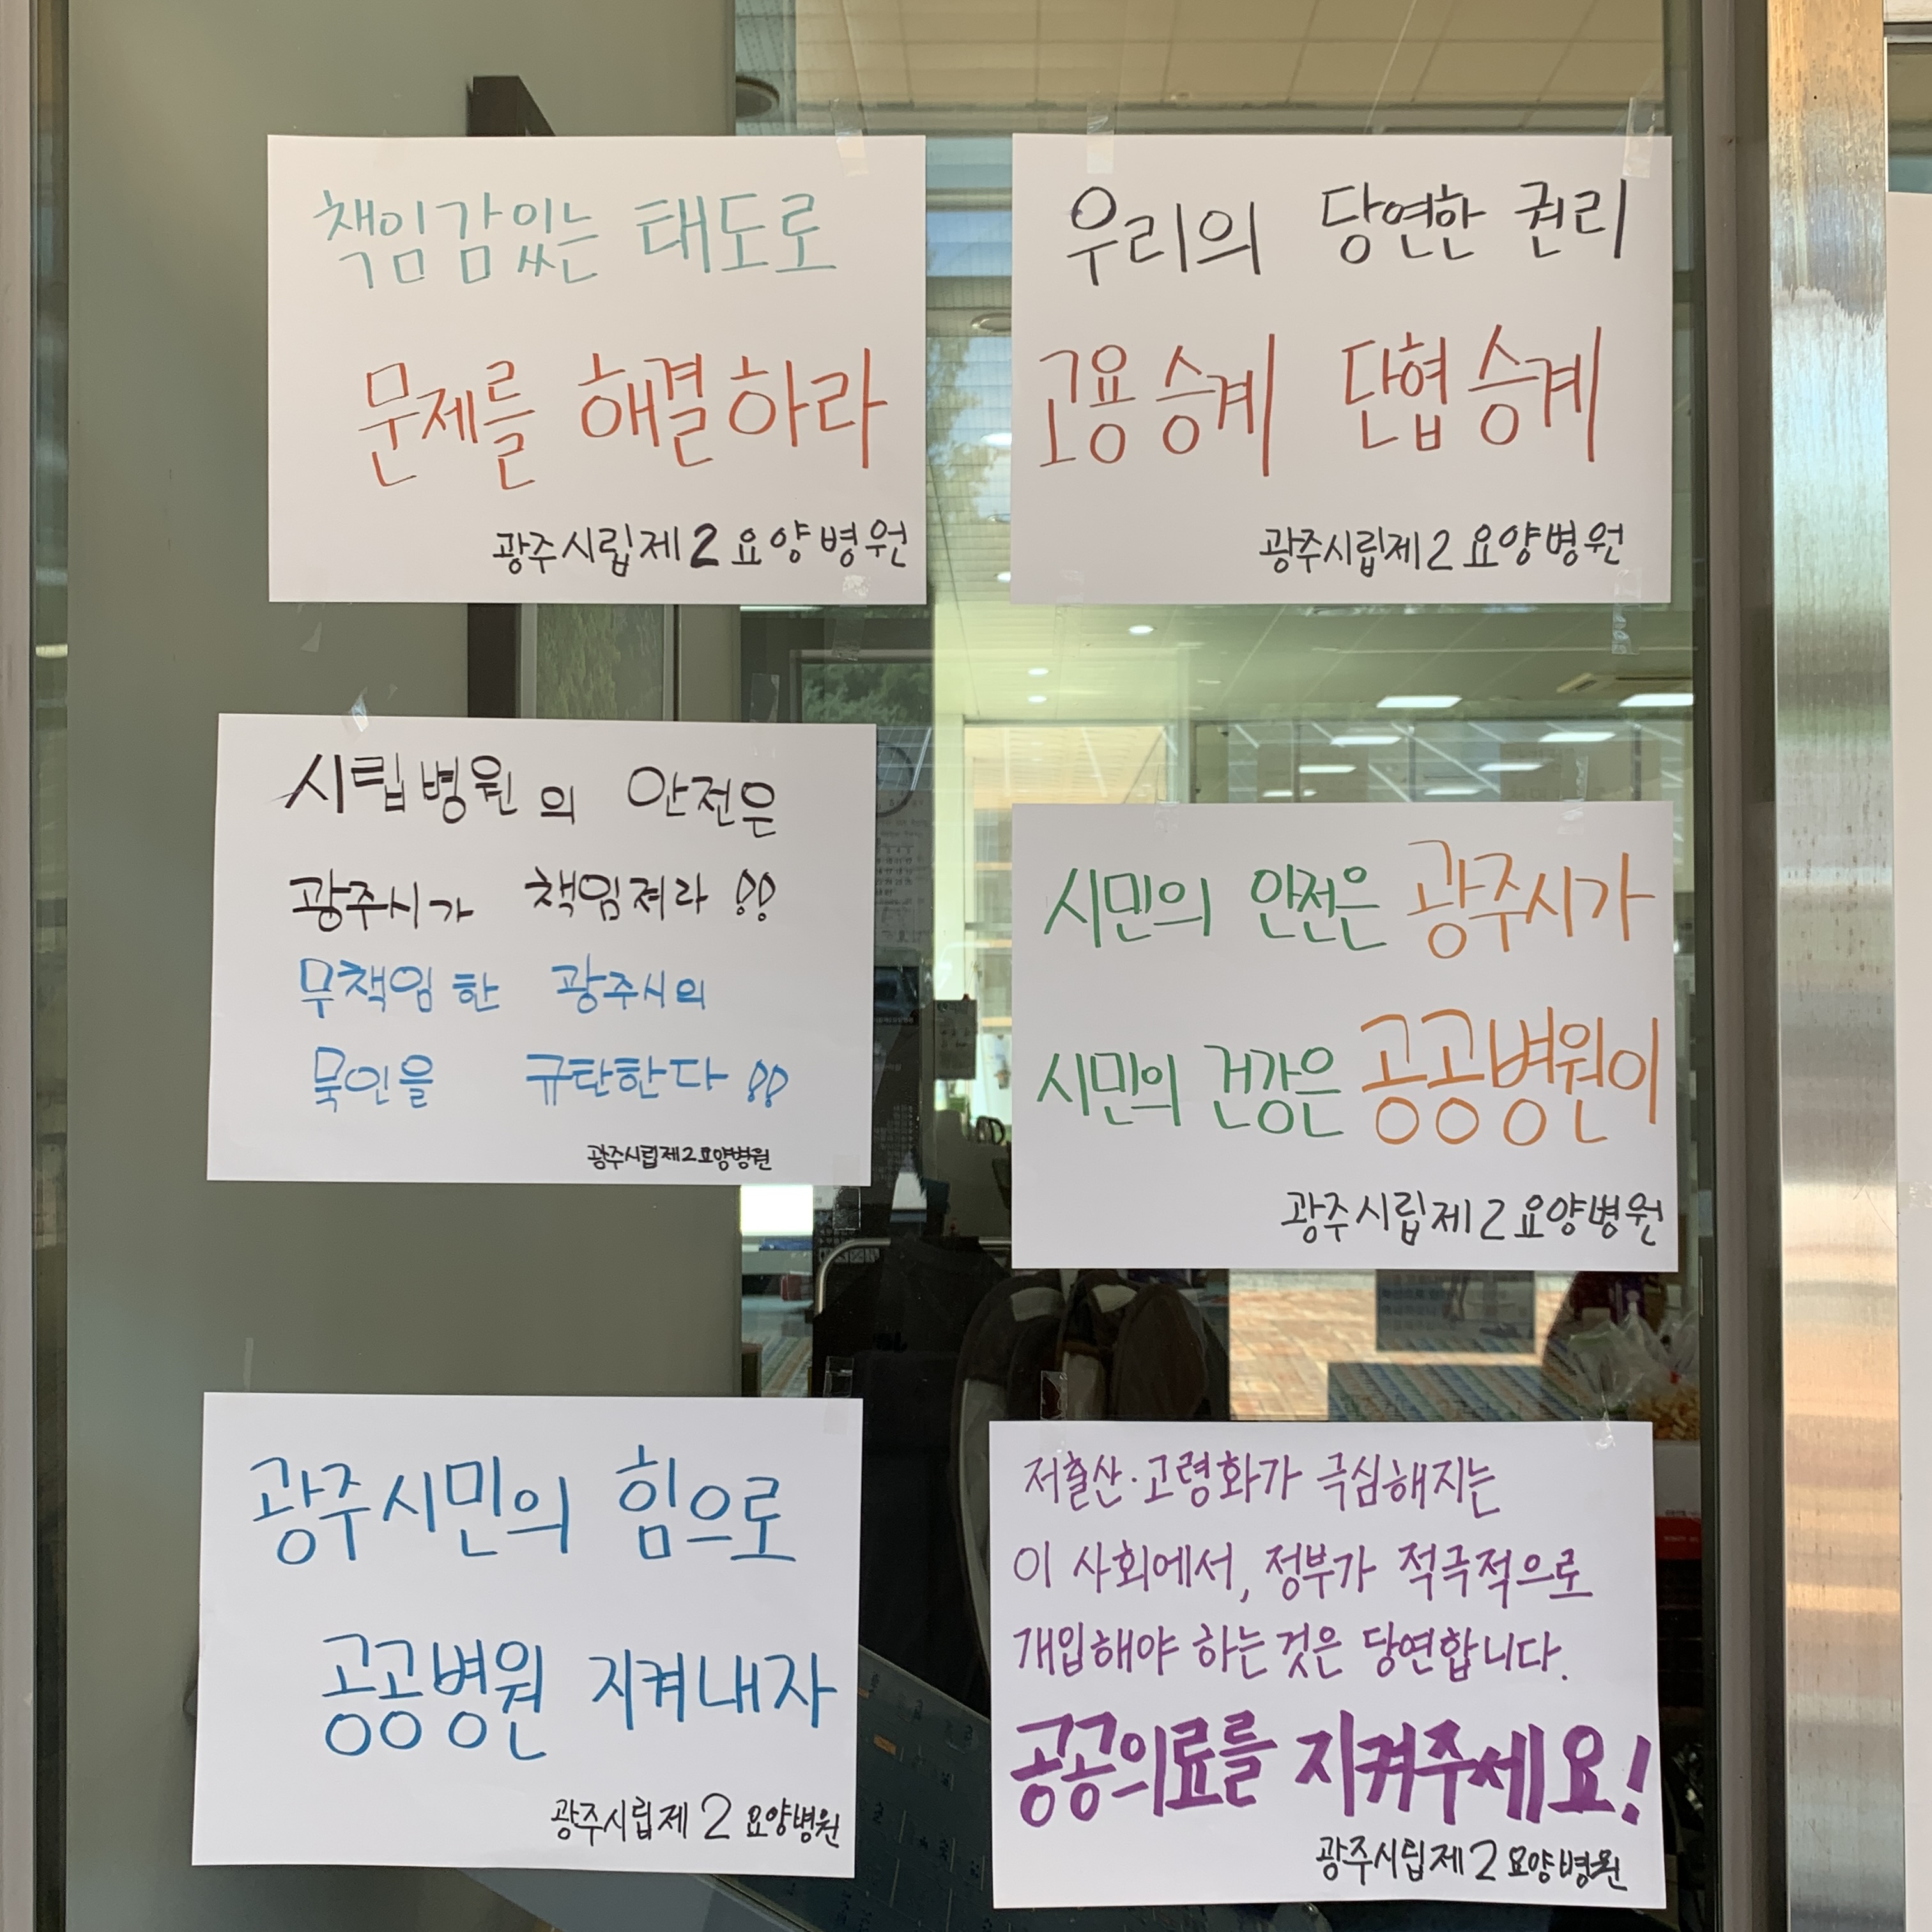 책임감있는 태도로
문제를 해결하라
광주시립제2요양병원
우리의 당연한 권리
고용승계 단협승계
광주시립제2요양병원
시립병원의 안전은
광주시가 책임져라!!
무책임한 광주시의
묵인을 규탄한다!!
광주시립제2요양병원
시민의 안전은 광주시가
시민의 건강은 공공병원이
광주시립제2요양병원
광주시민의 힘으로
공공병원 지켜내자
광주시립제2요양병원
저출산·고령화가 극심해지는
이 사회에서, 정부가 적극적으로
개입해야 하는 것은 당연합니다.
공공의료를 지켜주세요!
광주시립제2요양병원